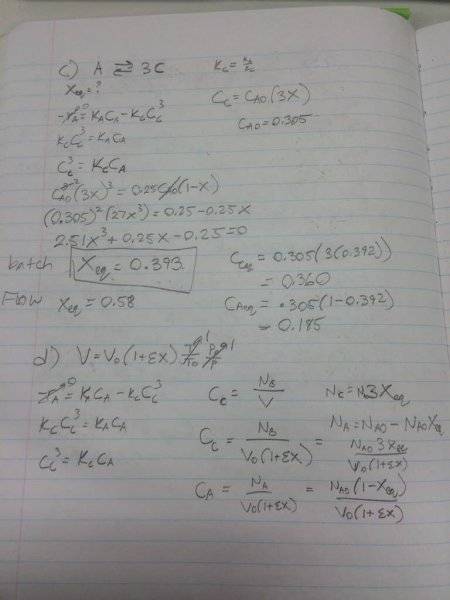 c) A ⇌ 3C    K_C = k_A/k_C
X_eq = ?    C_C = C_A0 (3X)
-r_A = k_A C_A - k_C C_C^3    C_A0 = 0.305
k_C C_C^3 = k_A C_A
C_C^3 = K_C C_A
C_A0^2 (3X)^3 = 0.25 C_A0 (1-X)
(0.305)^2 (27X^3) = 0.25 - 0.25X
2.51X^3 + 0.25X - 0.25 = 0
batch X_eq = 0.393    C_Ceq = 0.305(3(0.392))
= 0.360
Flow X_eq = 0.58    C_Aeq = .305(1-0.392)
= 0.185
d) V = V_0 (1+εX) T/T_0 P_0/P
-r_A = k_A C_A - k_C C_C^3    C_C = N_B/V    N_C = N 3X_eq
k_C C_C^3 = k_A C_A    N_A = N_A0 - N_A0 X_eq
C_C = N_B/V_0(1+εX) = N_A0 3X_eq/V_0(1+εX)
C_C^3 = K_C C_A
C_A = N_A/V_0(1+εX) = N_A0(1-X_eq)/V_0(1+εX)